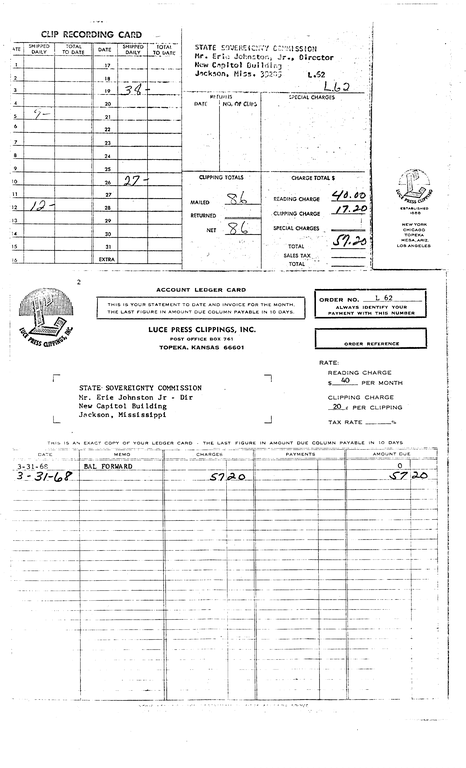 CLIP RECORDING CARD
DATE SHIPPED DAILY TOTAL TO DATE DATE SHIPPED DAILY TOTAL TO DATE
1 17
2 18
3 19 38-
4 20
5 9- 21
6 22
7 23
8 24
9 25
10 26 27-
11 27
12 12- 28
13 29
14 30
15 31
16 EXTRA
STATE SOVEREIGNTY COMMISSION
Mr. Erie Johnston, Jr., Director
New Capitol Building
Jackson, Miss. 39205 L.52
L.62
RETURNS
DATE NO. OF CLIPS
SPECIAL CHARGES
CLIPPING TOTALS
MAILED 86
RETURNED
NET 86
CHARGE TOTAL $
READING CHARGE 40.00
CLIPPING CHARGE 17.20
SPECIAL CHARGES
TOTAL 57.20
SALES TAX
TOTAL
LUCE PRESS CLIPPINGS
ESTABLISHED
1888
NEW YORK
CHICAGO
TOPEKA
MESA, ARIZ.
LOS ANGELES
2
LUCE PRESS CLIPPINGS, INC.
ACCOUNT LEDGER CARD
THIS IS YOUR STATEMENT TO DATE AND INVOICE FOR THE MONTH.
THE LAST FIGURE IN AMOUNT DUE COLUMN PAYABLE IN 10 DAYS.
LUCE PRESS CLIPPINGS, INC.
POST OFFICE BOX 761
TOPEKA, KANSAS 66601
ORDER NO. L 62
ALWAYS IDENTIFY YOUR
PAYMENT WITH THIS NUMBER
ORDER REFERENCE
RATE:
READING CHARGE
$ 40 PER MONTH
CLIPPING CHARGE
20 ¢ PER CLIPPING
TAX RATE %
STATE SOVEREIGNTY COMMISSION
Mr. Erie Johnston Jr - Dir
New Capitol Building
Jackson, Mississippi
THIS IS AN EXACT COPY OF YOUR LEDGER CARD - THE LAST FIGURE IN AMOUNT DUE COLUMN PAYABLE IN 10 DAYS
DATE MEMO CHARGES PAYMENTS AMOUNT DUE
3-31-68 BAL FORWARD 0
3-31-68 57 20 57 20